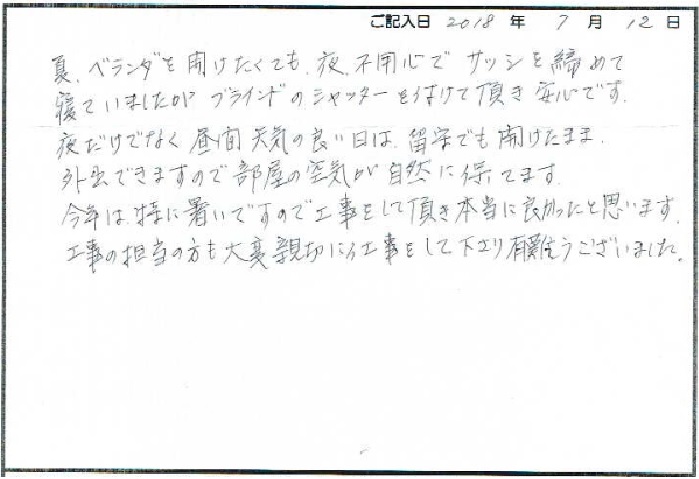 ご記入日 2018 年 7 月 12 日
夏、ベランダを開けたくても、夜、不用心でサッシを締めて
寝ていましたが ブラインドのシャッターをつけて頂き安心です。
夜だけでなく昼間天気の良い日は、留守でも開けたまま、
外出できますので部屋の空気が自然に保てます。
今年は特に暑いですので工事をして頂き本当に良かったと思います。
工事の担当の方も大変親切に仕事をして下さり有難うございました。